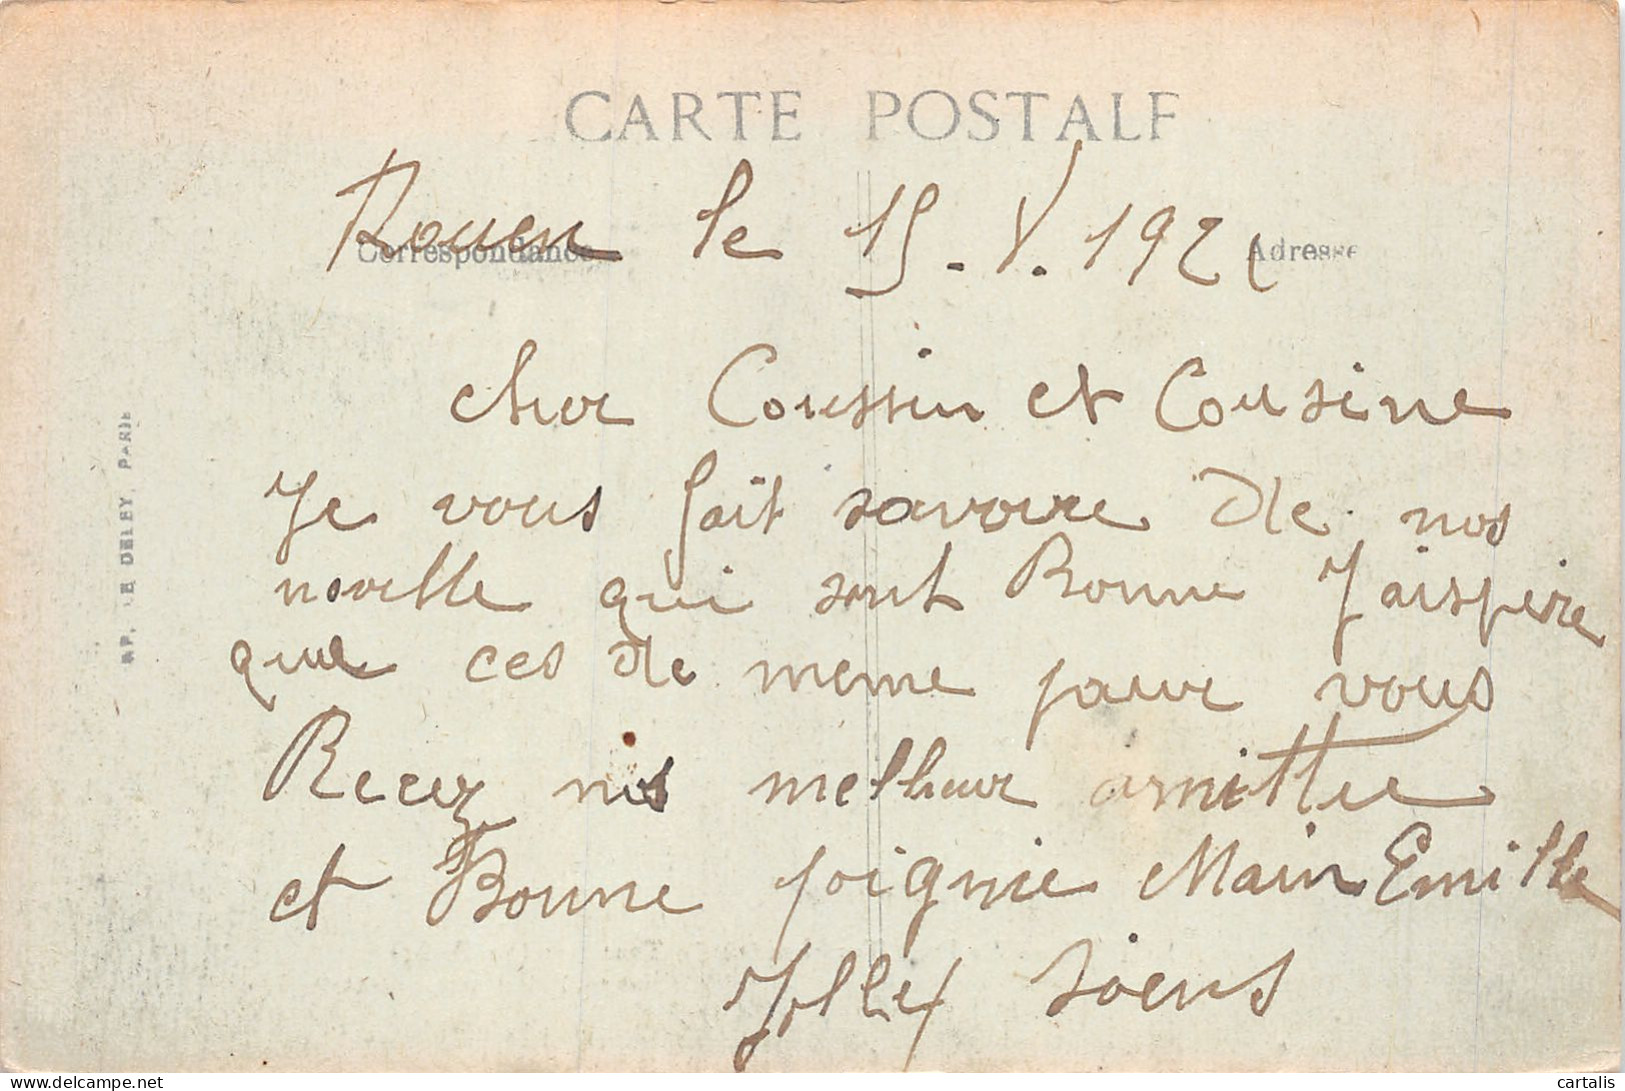 CARTE POSTALE
Rouen le 15.V.1921
Correspondance
Adresse
cher Coussin et Cousine
Je vous fait savoire de nos
novelle qui sont Bonne J'aispère
que ces de meme pour vous
Recez nos melheur amittie
et Bonne poignie Main Emille
siens
LE DELEY, PARIS
delcampe.net
cartalis